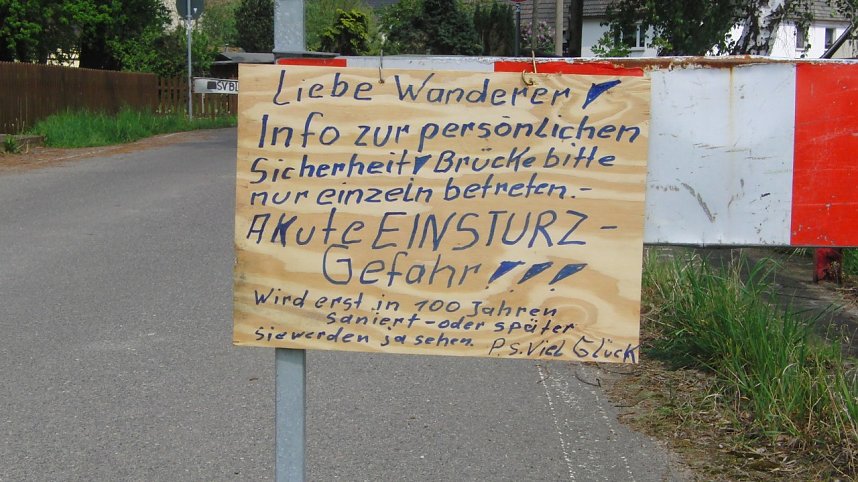 Liebe Wanderer!
Info zur persönlichen
Sicherheit! Brücke bitte
nur einzeln betreten.-
Akute EINSTURZ-
Gefahr!!!
Wird erst in 100 Jahren
saniert-oder später
sie werden ja sehen. P.S. Viel Glück
SV BL